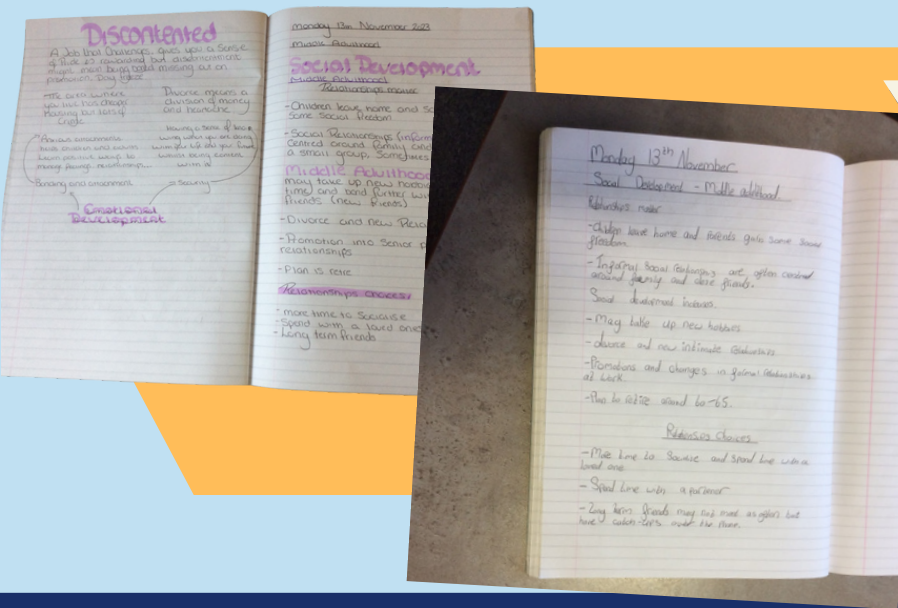 Discontented
A Job that Challenges, gives you a Sense
of Pride is rewarding but
missing out on
promotion, Pay
The area where
you live has cheap
Housing but lots of
Crime
Divorce means a
division of money
and heartache
- Anxious attachment
feelings, relationships...
Having a sense of
being
with your life and your
Bonding and attachment
Security
Emotional
Development
Monday 13th November 2023
Middle Adulthood
Social Development
Middle Adulthood
Relationships matter
- Children leave home and
Some Social freedom
- Social Relationships (inform
Centred around family and
a small group, Sometimes
Middle Adulthood
may take up new
time) and bond further wi
friends (new friends)
- Divorce and new Rela
- Promotion into Senior p
relationships
- Plan is retire
Relationships Choices:
- more time to Socialise
- Spend with a loved one
- Long term friends
Monday 13th November
Social Development - Middle adulthood
Relationships matter
- Children leave home and Parents gain some Social
freedom.
- Informal Social relationships are often centred
around family and close friends.
Social development increases.
- May take up new hobbies
- divorce and new intimate relationships
- Promotions and changes in formal relationships
at work.
- Plan to retire around 60-65.
Relationships Choices
- More time to Socilise and Spend time with a
loved one.
- Spend time with a partner
- Long term friends may not meet as often but
have catch-ups over the phone.